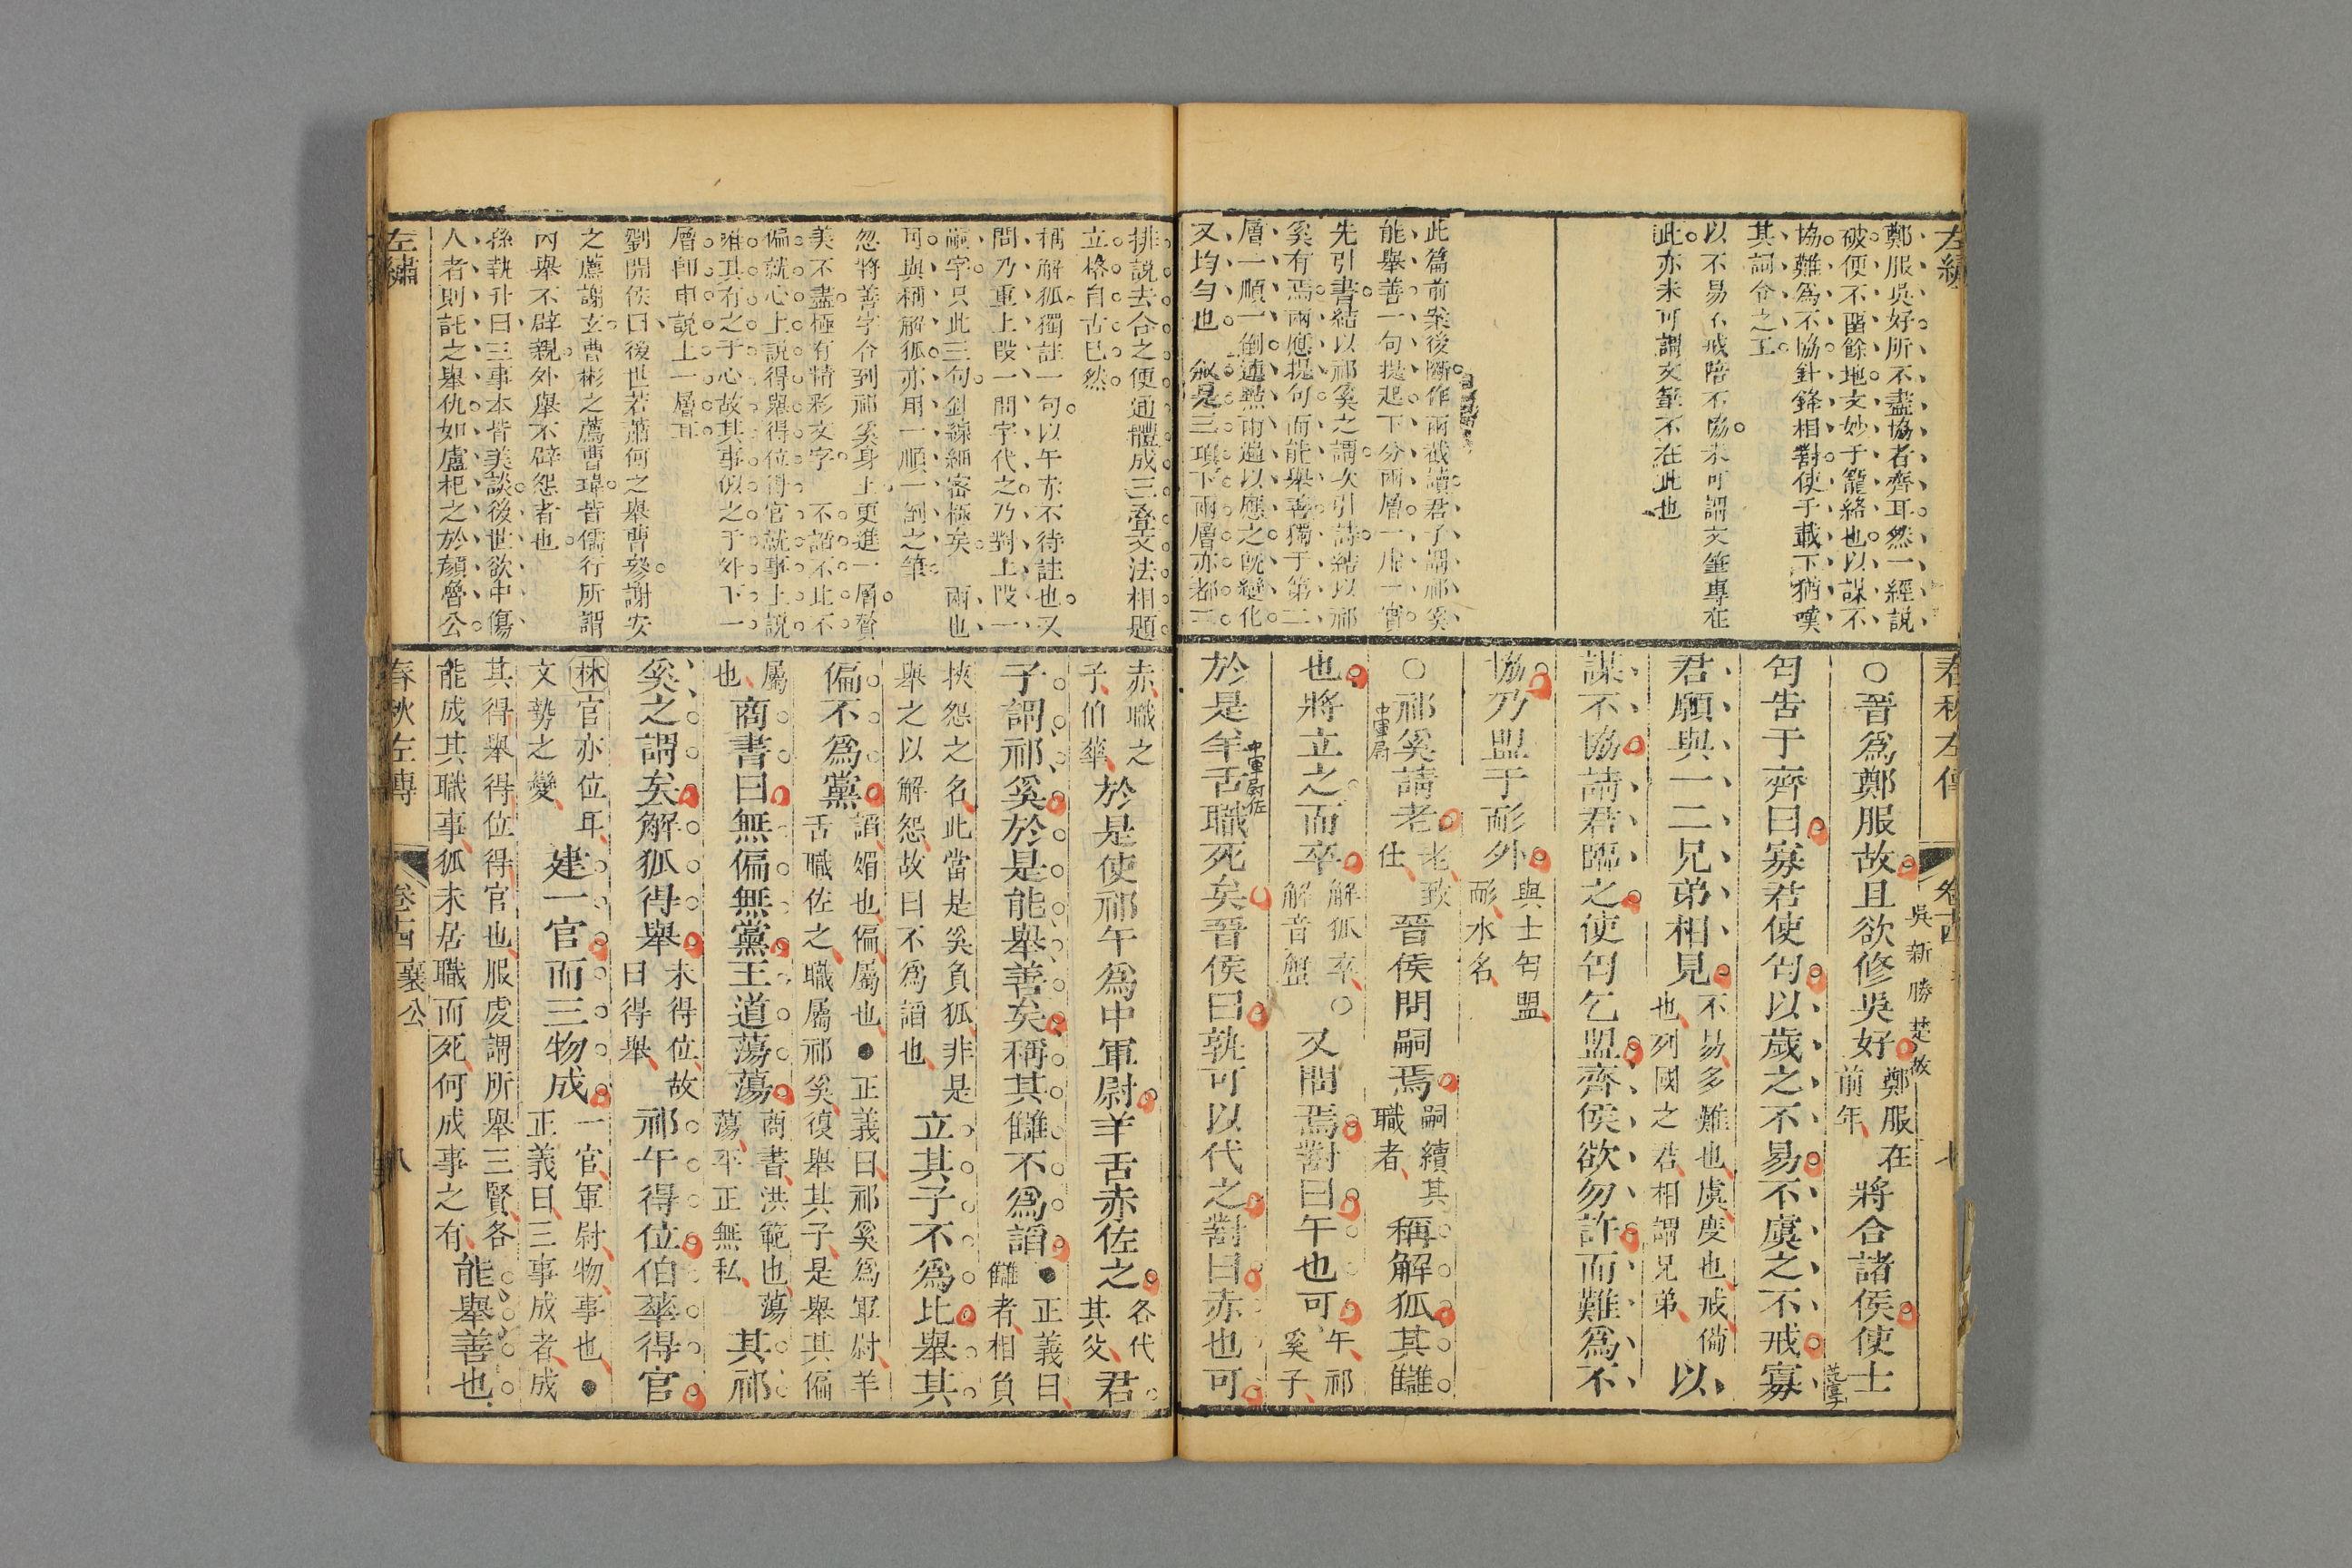 左繡
鄭服吳好所不盡協者齊耳然一經說
破便不留餘地文妙于籠絡也以謀不
協難爲不協針鋒相對使千載下猶嘆
其詞令之工
以不易不戒陪不協未可謂文筆專在
此亦未可謂文筆不在此也
此篇前案後斷作兩截讀君子謂祁奚
能舉善一句提起下分兩層一虛一實
先引書結以祁奚之謂次引詩結以祁
奚有焉兩應提句而能舉善獨于第二
層一順一倒連點兩遍以應之旣變化
又均勻也 敘是三項下兩層亦都三
春秋左傳 卷十四 七
吳新勝楚故
○晉爲鄭服故且欲修吳好鄭服在前年將合諸侯使士
范宣子
匄告于齊曰寡君使匄以歲之不易不虞之不戒寡
君願與一二兄弟相見不易多難也虞度也戒備也列國之君相謂兄弟以
謀不協請君臨之使匄乞盟齊侯欲勿許而難爲不
協乃盟于耏外與士匄盟耏水名
○祁奚請老老致仕晉侯問嗣焉嗣續其職者稱解狐其讎
中軍尉
也將立之而卒解狐卒○解音蟹又問焉對曰午也可午祁奚子
中軍尉佐
於是羊舌職死矣晉侯曰孰可以代之對曰赤也可
排說去合之便通體成三疊文法相題
立格自古已然
稱解狐獨註一句以午亦不待註也又
問乃重上段一問字代之乃對上段一
嗣字只此三句針線細密極矣 兩也
可與稱解狐亦用一順一倒之筆
忽將善字合到祁奚身上更進一層贊
美不盡極有精彩文字 不謟不比不
偏就心上說得舉得位得官就事上說
惟其有之于心故其事似之于外下一
層卽申說上一層耳
劉開侯曰後世若蕭何之舉曹參謝安
之薦謝玄曹彬之薦曹瑋皆儒行所謂
內舉不辟親外舉不辟怨者也
孫執升曰三事本皆美談後世欲中傷
人者則託之舉仇如盧杞之於顏魯公
左繡
赤職之子伯華於是使祁午爲中軍尉羊舌赤佐之各代其父君
子謂祁奚於是能舉善矣稱其讎不爲謟●正義曰讎者相負
挾怨之名此當是奚負狐非是舉之以解怨故曰不爲謟也立其子不爲比舉其
偏不爲黨謟媚也偏屬也●正義曰祁奚爲軍尉羊舌職佐之職屬祁奚復舉其子是舉其偏
屬也商書曰無偏無黨王道蕩蕩商書洪範也蕩蕩平正無私其祁
奚之謂矣解狐得舉未得位故曰得舉祁午得位伯華得官
林官亦位耳文勢之變建一官而三物成一官軍尉物事也●正義曰三事成者成
其得舉得位得官也服虔謂所舉三賢各能成其職事狐未居職而死何成事之有能舉善也
春秋左傳 卷十四 襄公 八